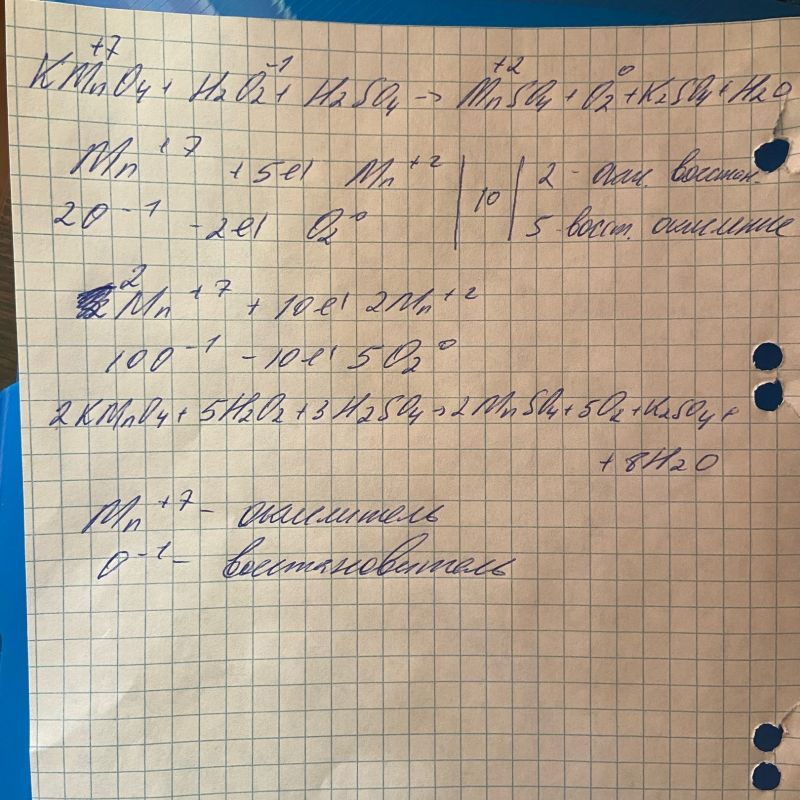 +7 -1 +2 0
KMnO4 + H2O2 + H2SO4 → MnSO4 + O2 + K2SO4 + H2O
Mn+7 +5e| Mn+2 | 10 | 2 - окисл. восстан.
2O-1 -2e| O2 0 5 - восст. окисление
2Mn+7 + 10e| 2Mn+2
10O-1 - 10e| 5O2 0
2KMnO4 + 5H2O2 + 3H2SO4 → 2MnSO4 + 5O2 + K2SO4 +
+ 8H2O
Mn+7 - окислитель
O-1 - восстановитель